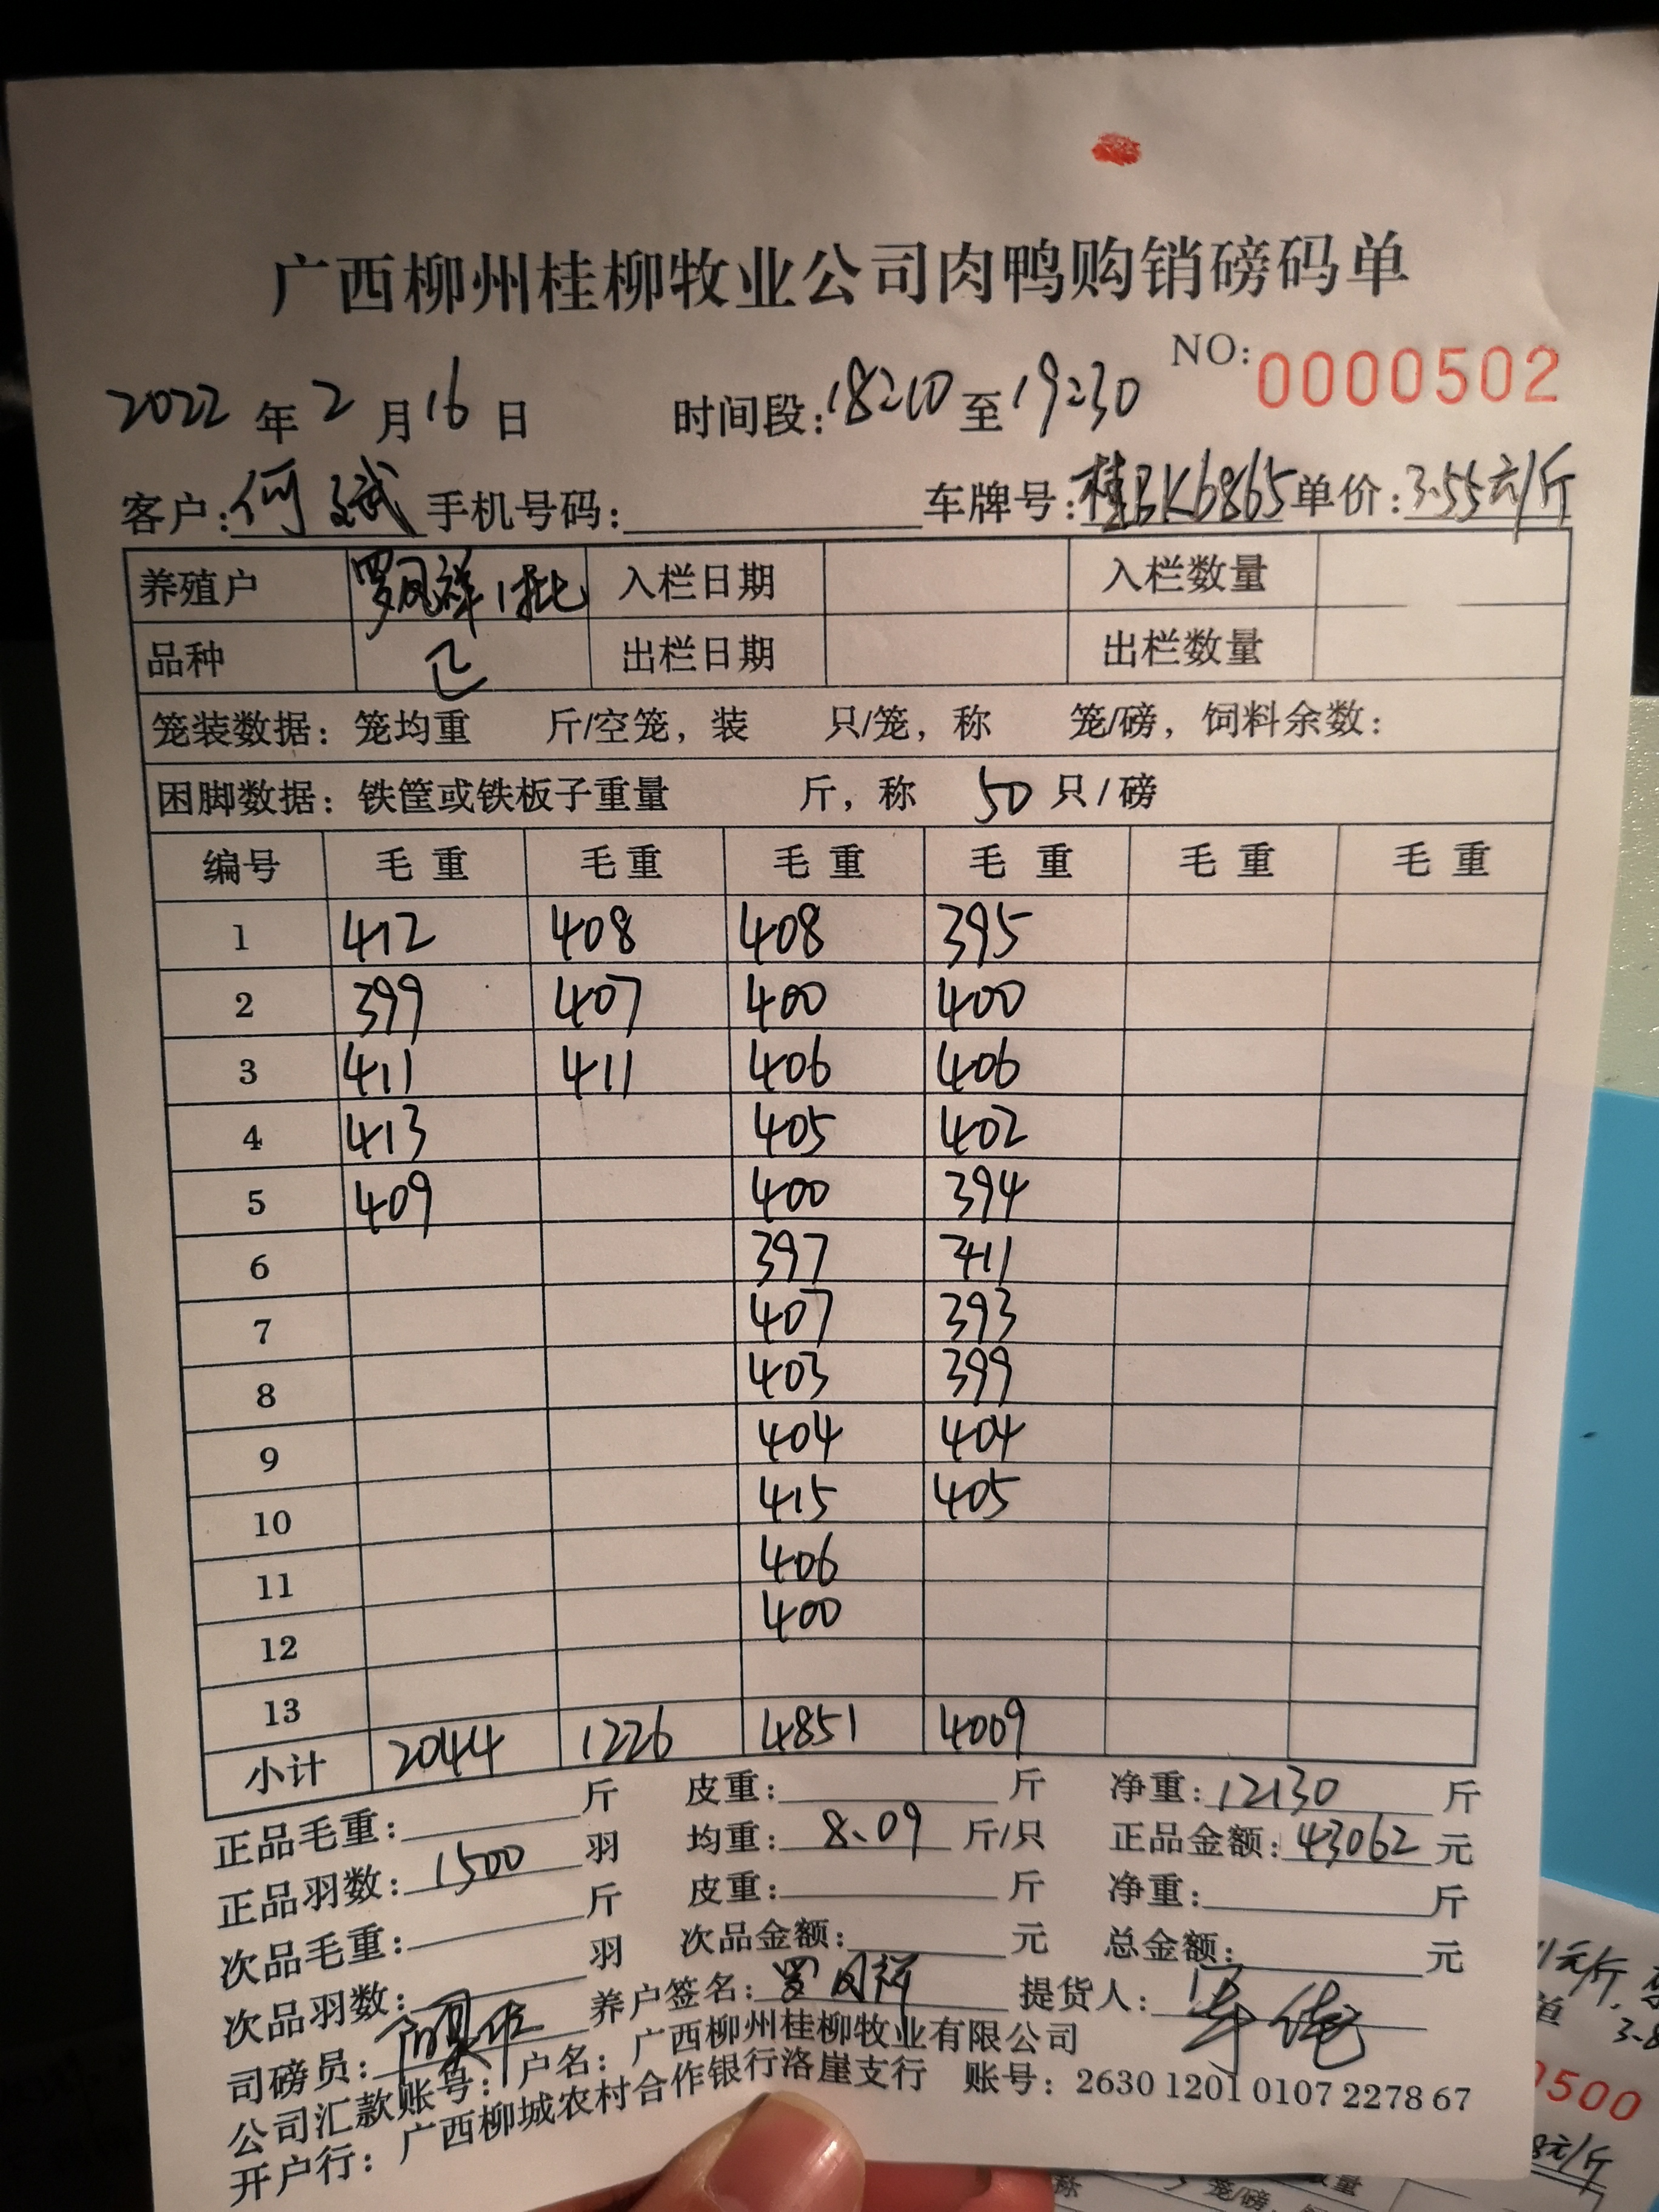 广西柳州桂柳牧业公司肉鸭购销磅码单
NO: 0000502
2022 年 2 月 16 日 时间段: 18:10 至 19:30
客户: 何 斌 手机号码: 车牌号: 桂BK6865 单价: 3.55元/斤
养殖户 罗凤祥1批 入栏日期 入栏数量
品种 出栏日期 出栏数量
笼装数据: 笼均重 斤/空笼, 装 只/笼, 称 笼/磅, 饲料余数:
困脚数据: 铁筐或铁板子重量 斤, 称 50 只/磅
编号 毛重 毛重 毛重 毛重 毛重 毛重
1 412 408 408 395
2 399 407 400 400
3 411 411 406 406
4 413 405 402
5 409 400 394
6 397 411
7 407 393
8 403 399
9 404 404
10 415 405
11 406
12 400
13
小计 2044 1226 4851 4009
正品毛重: 斤 皮重: 斤 净重: 12130 斤
正品羽数: 1500 羽 均重: 8.09 斤/只 正品金额: 43062 元
次品毛重: 斤 皮重: 斤 净重: 斤
次品羽数: 羽 次品金额: 元 总金额: 元
司磅员: 养户签名: 罗凤祥 提货人:
公司汇款账号: 户名: 广西柳州桂柳牧业有限公司
开户行: 广西柳城农村合作银行洛崖支行 账号: 2630 1201 0107 2278 67